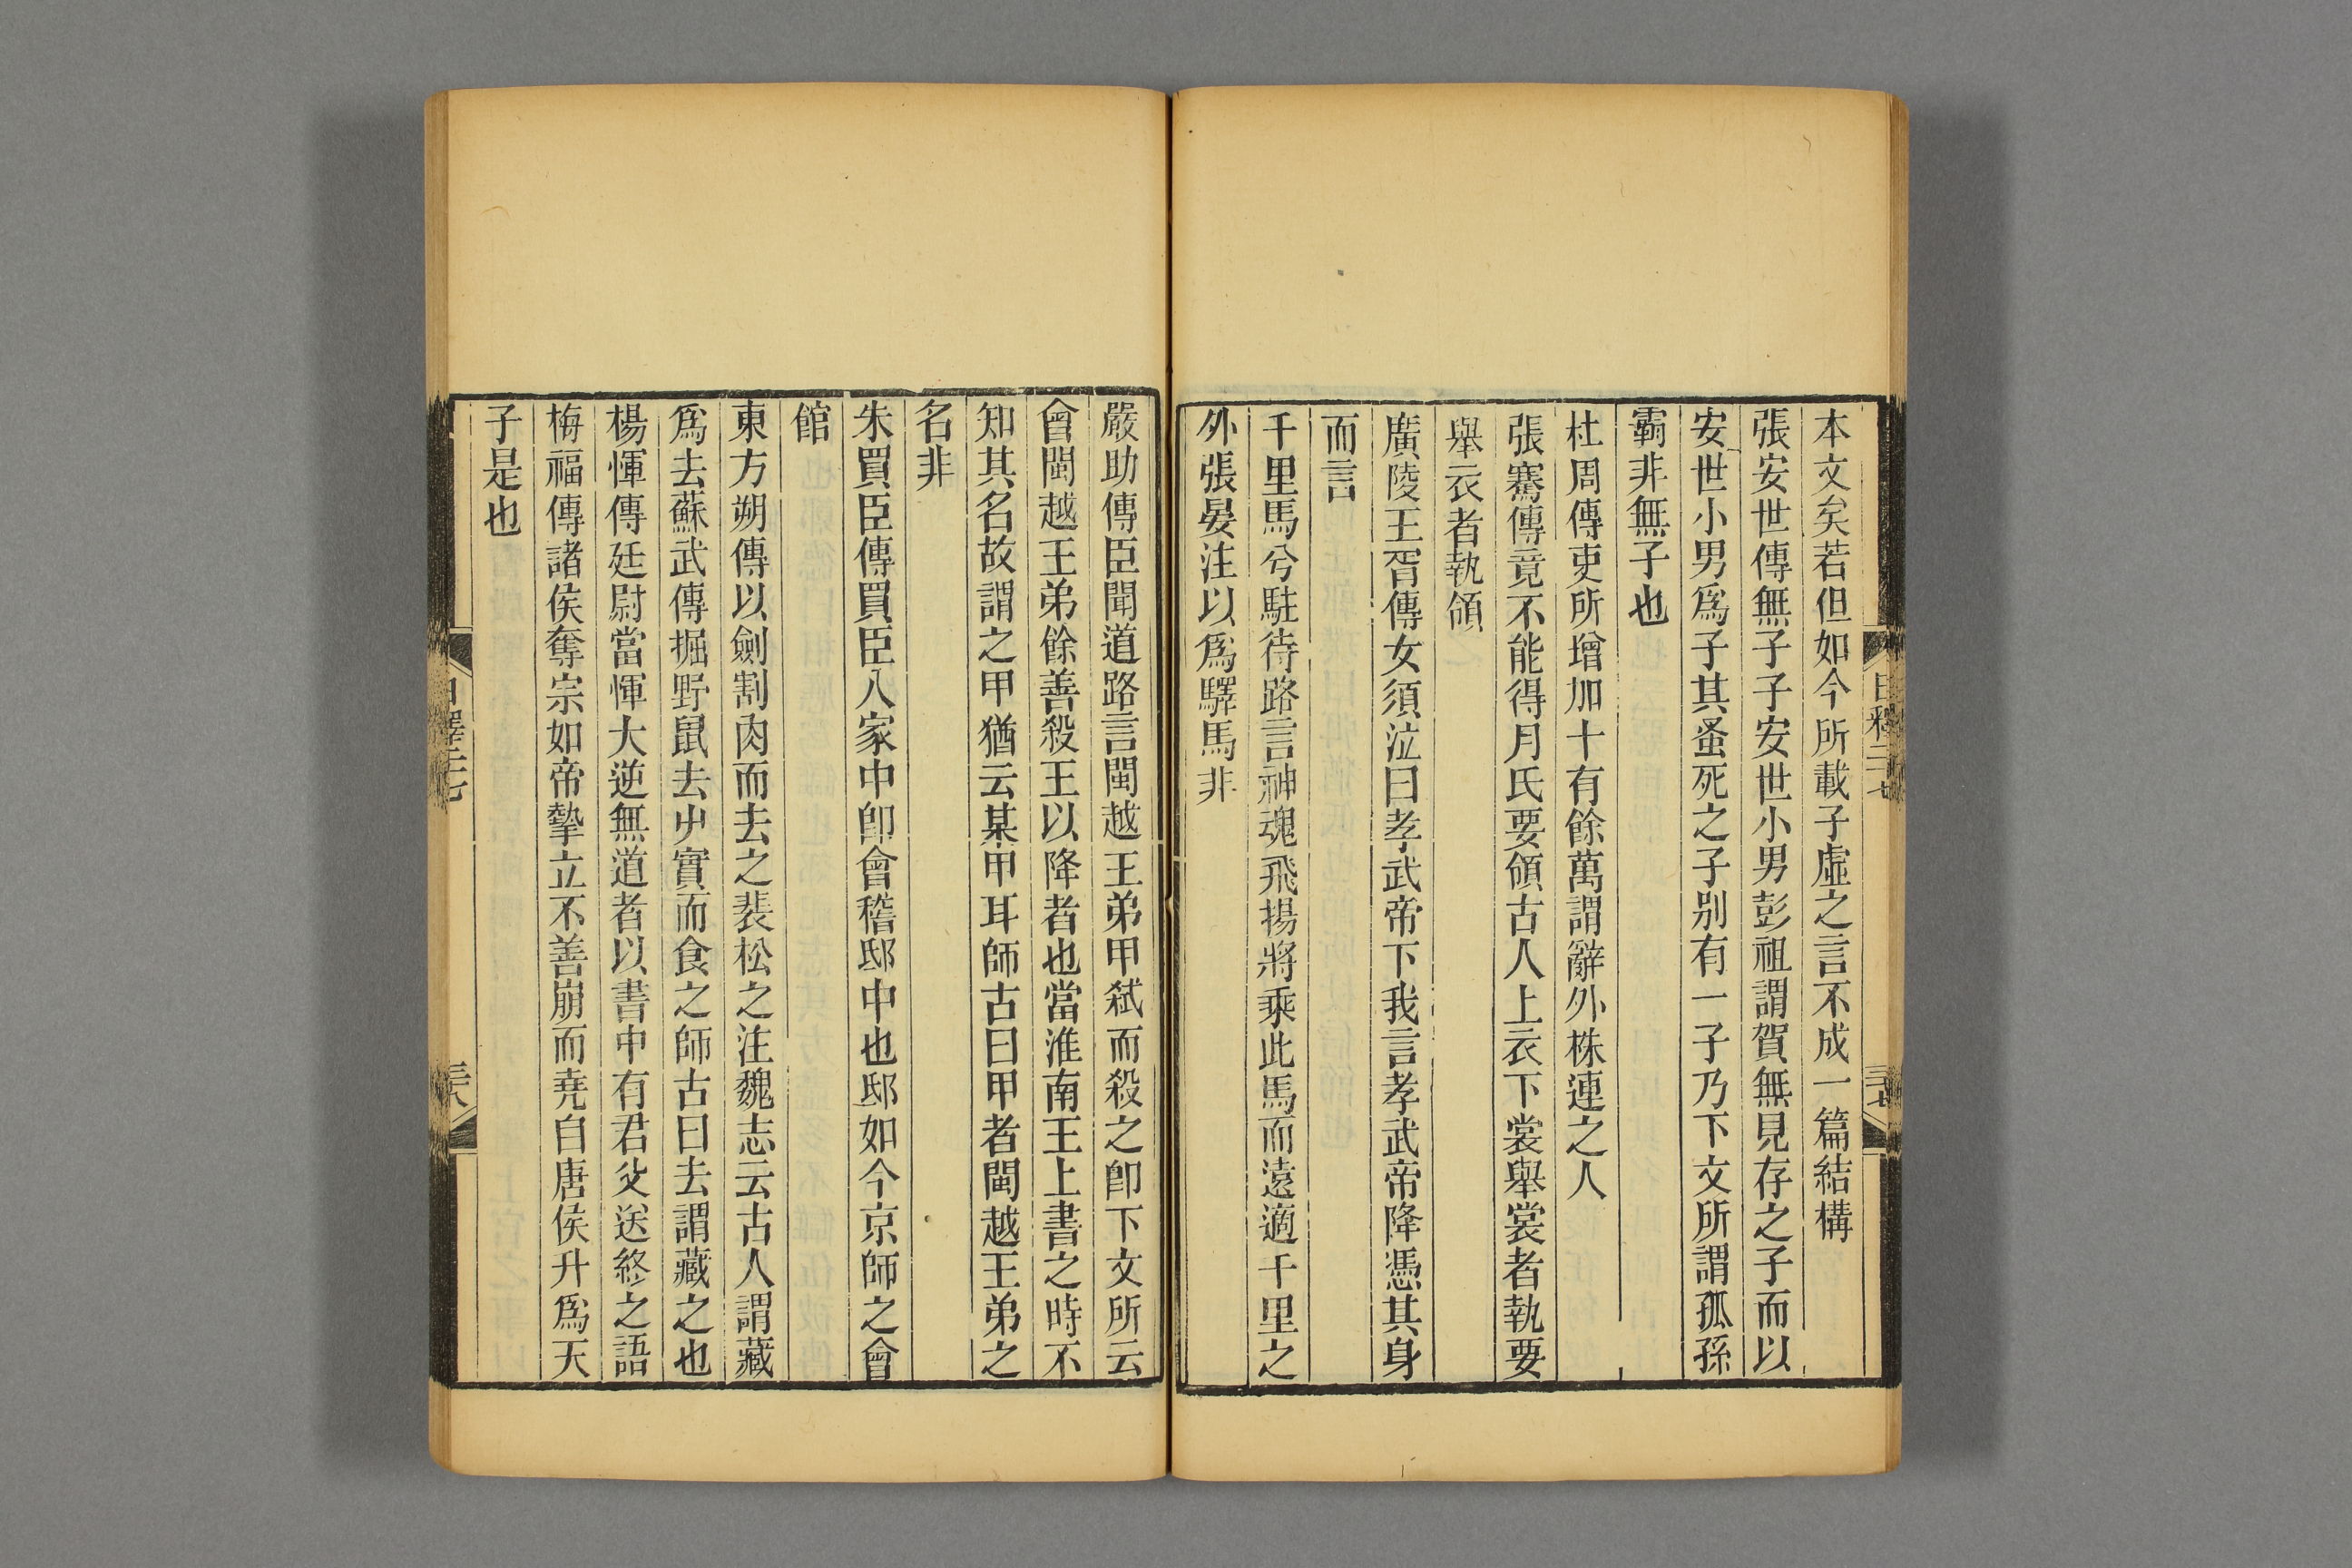 本文矣若但如今所載子虛之言不成一篇結構
張安世傳無子子安世小男彭祖謂賀無見存之子而以
安世小男爲子其蚤死之子别有一子乃下文所謂孤孫
霸非無子也
杜周傳吏所增加十有餘萬謂辭外株連之人
張騫傳竟不能得月氏要領古人上衣下裳舉裳者執要
舉衣者執領
廣陵王胥傳女須泣曰孝武帝下我言孝武帝降憑其身
而言
千里馬兮駐待路言神魂飛揚將乘此馬而遠適千里之
外張晏注以爲驛馬非
嚴助傳臣聞道路言閩越王弟甲弑而殺之卽下文所云
會閩越王弟餘善殺王以降者也當淮南王上書之時不
知其名故謂之甲猶云某甲耳師古曰甲者閩越王弟之
名非
朱買臣傳買臣入家中卽會稽邸中也邸如今京師之會
館
東方朔傳以劍割肉而去之裴松之注魏志云古人謂藏
爲去蘇武傳掘野鼠去屮實而食之師古曰去謂藏之也
楊惲傳廷尉當惲大逆無道者以書中有君父送終之語
梅福傳諸侯奪宗如帝摯立不善崩而堯自唐侯升爲天
子是也